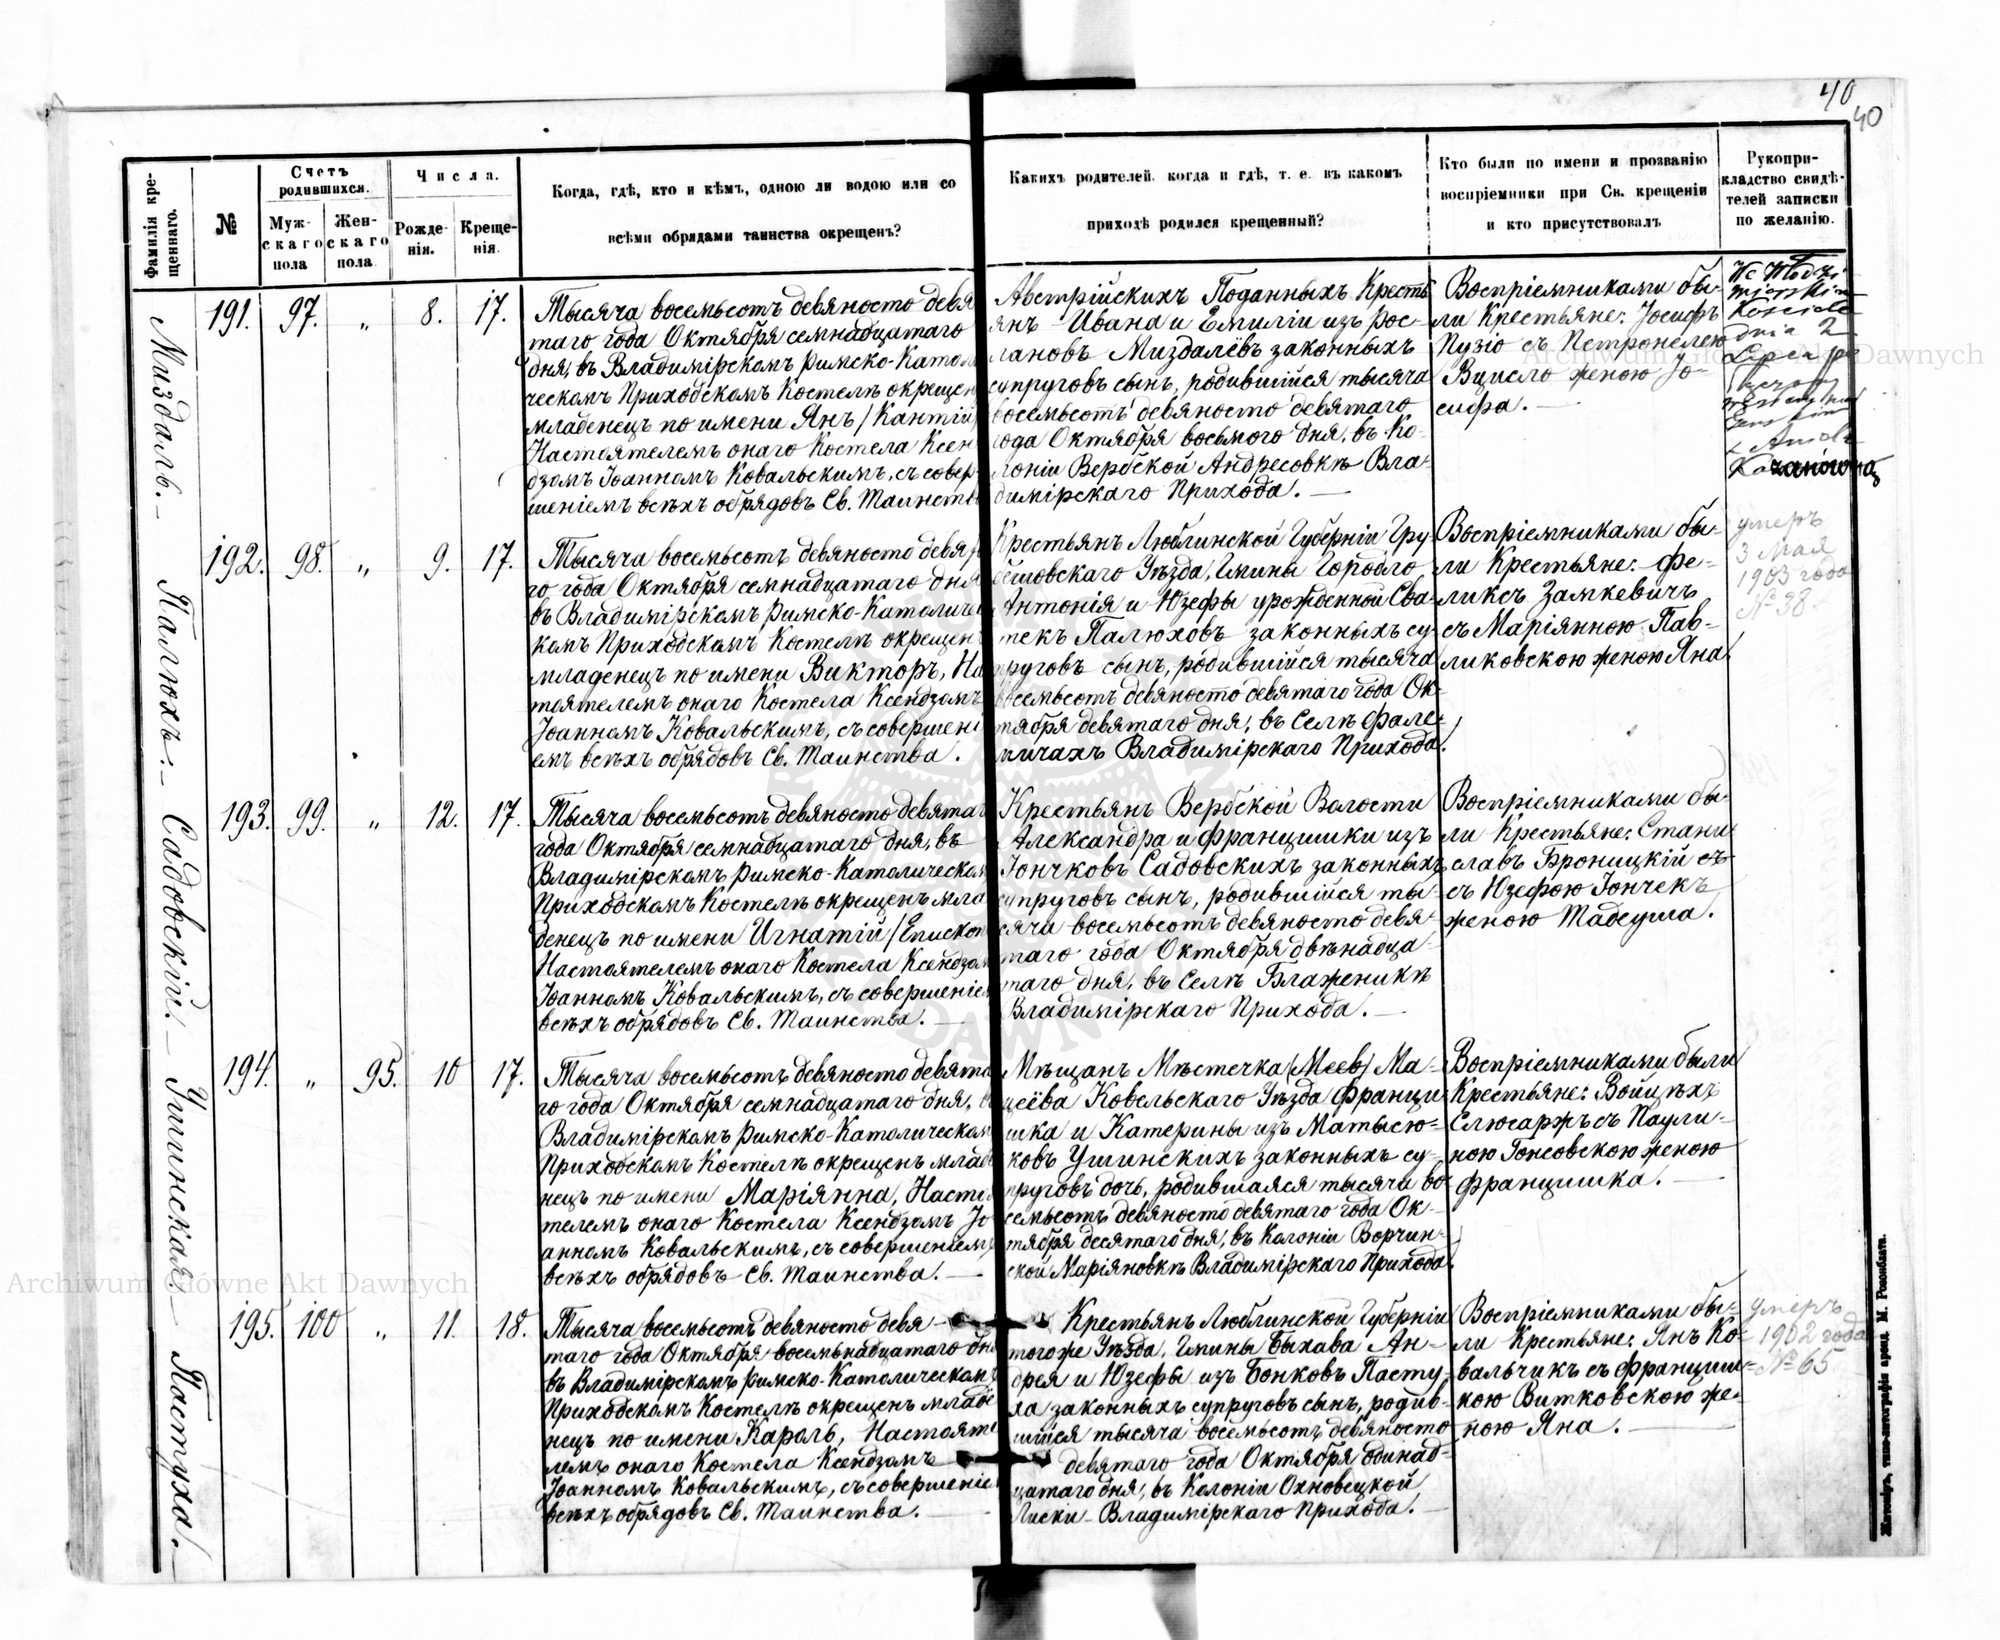 40
40
Фамилія кре-
щеннаго.
№
Счетъ
родившихся.
Муж-
скаго
пола
Жен-
скаго
пола.
Числа.
Рожде-
нія.
Креще-
нія.
Когда, гдѣ, кто и кѣмъ, одною ли водою или со
всѣми обрядами таинства окрещенъ?
Какихъ родителей, когда и гдѣ, т. е. въ какомъ
приходѣ родился крещенный?
Кто были по имени и прозванію
воспріемники при Св. крещеніи
и кто присутствовалъ
Рукопри-
кладство свидѣ-
телей записки
по желанію.
Миздаль.
191. 97. „ 8. 17.
Тысяча восемьсотъ девяносто девя
таго года Октября семнадцатаго
дня, въ Владимірскомъ Римско-Катол
ческомъ Приходскомъ Костелѣ окрещен
младенецъ по имени Янъ /Кантій/
Настоятелемъ онаго Костела Ксен
дзомъ Іоанномъ Ковальскимъ, съ совер
шеніемъ всѣхъ обрядовъ Св. Таинства
Австрійскихъ Поданныхъ Кресть
янъ Ивана и Емиліи изъ Рос-
лановъ Миздалёвъ законныхъ
супруговъ сынъ, родившійся тысяча
восемьсотъ девяносто девятаго
года Октября восьмого дня, въ Ко-
лоніи Вербской Андресовкѣ Вла-
димірскаго Прихода.
Воспріемниками бы-
ли Крестьяне: Іосифъ
Пузіо съ Петронелею
Вцисло женою Іо-
сифа.
dnia 2
Палюхъ.
192. 98. „ 9. 17.
Тысяча восемьсотъ девяносто девят
го года Октября семнадцатаго дня
въ Владимірскомъ Римско-Католичес
комъ Приходскомъ Костелѣ окрещен
младенецъ по имени Викторъ, Нас
тоятелемъ онаго Костела Ксендзомъ
Іоанномъ Ковальскимъ, съ совершені
емъ всѣхъ обрядовъ Св. Таинства.
Крестьянъ Люблинской Губерніи Гру-
бешовскаго Уѣзда, Гмины Городло
Антонія и Юзефы урожденной Сва-
текъ Палюховъ законныхъ су-
пруговъ сынъ, родившійся тысяча
восемьсотъ девяносто девятаго года Ок-
тября девятаго дня, въ Селѣ Фале-
мичахъ Владимірскаго Прихода.
Воспріемниками бы-
ли Крестьяне: Фе-
ликсъ Замкевичъ
съ Маріянною Пав-
ликовскою женою Яна.
умеръ
3 Мая
1903 года
№ 38
Садовскій.
193. 99. „ 12. 17.
Тысяча восемьсотъ девяносто девятаг
года Октября семнадцатаго дня, въ
Владимірскомъ Римско-Католическом
Приходскомъ Костелѣ окрещенъ мла
денецъ по имени Игнатій /Епископ
Настоятелемъ онаго Костела Ксендзом
Іоанномъ Ковальскимъ, съ совершеніе
всѣхъ обрядовъ Св. Таинства.
Крестьянъ Вербской Волости
Александра и Францишки изъ
Гончковъ Садовскихъ законныхъ
супруговъ сынъ, родившійся ты-
сяча восемьсотъ девяносто девя-
таго года Октября двѣнадца-
таго дня, въ Селѣ Блаженикѣ
Владимірскаго Прихода.
Воспріемниками бы-
ли Крестьяне: Стани-
славъ Броницкій съ
съ Юзефою Гончекъ
женою Тадеуша.
Ушинская
194. „ 95. 10 17.
Тысяча восемьсотъ девяносто девята
го года Октября семнадцатаго дня, въ
Владимірскомъ Римско-Католическом
Приходскомъ Костелѣ окрещенъ младе
нецъ по имени Маріянна, Настоя
телемъ онаго Костела Ксендзомъ Іо
анномъ Ковальскимъ, съ совершеніемъ
всѣхъ обрядовъ Св. Таинства.
Мѣщанъ Мѣстечка /Меев/ Ма-
цеёва Ковельскаго Уѣзда Франци-
шка и Катерины изъ Матысю-
ковъ Ушинскихъ законныхъ су-
пруговъ дочь, родившаяся тысяча во-
семьсотъ девяносто девятаго года Ок-
тября десятаго дня, въ Колоніи Ворчин-
ской Маріяновкѣ Владимірскаго Прихода.
Воспріемниками были
Крестьяне: Войцѣхъ
Слюсаржъ съ Паули-
ною Гонсовскою женою
Францишка.
Пастуха.
195. 100 „ 11. 18.
Тысяча восемьсотъ девяносто девя-
таго года Октября восемьнадцатаго дня
въ Владимірскомъ Римско-Католическомъ
Приходскомъ Костелѣ окрещенъ младе
нецъ по имени Кароль, Настояте
лемъ онаго Костела Ксендзомъ
Іоанномъ Ковальскимъ, съ совершеніе
всѣхъ обрядовъ Св. Таинства.
Крестьянъ Люблинской Губерніи
тогоже Уѣзда, Гмины Быхава Ан-
дрея и Юзефы изъ Бонковъ Пасту-
ха законныхъ супруговъ сынъ, родив-
шійся тысяча восемьсотъ девяносто
девятаго года Октября одинад-
цатаго дня, въ Колоніи Охновецкой
Лиски Владимірскаго Прихода.
Воспріемниками бы-
ли Крестьяне: Янъ Ко-
вальчикъ съ Францишк-
кою Витковскою же-
ною Яна.
умеръ
1902 года
№ 65
Житоміръ, типо-литографія аренд. М. Розенблата.
Archiwum Główne Akt Dawnych
Archiwum Główne Akt Dawnych